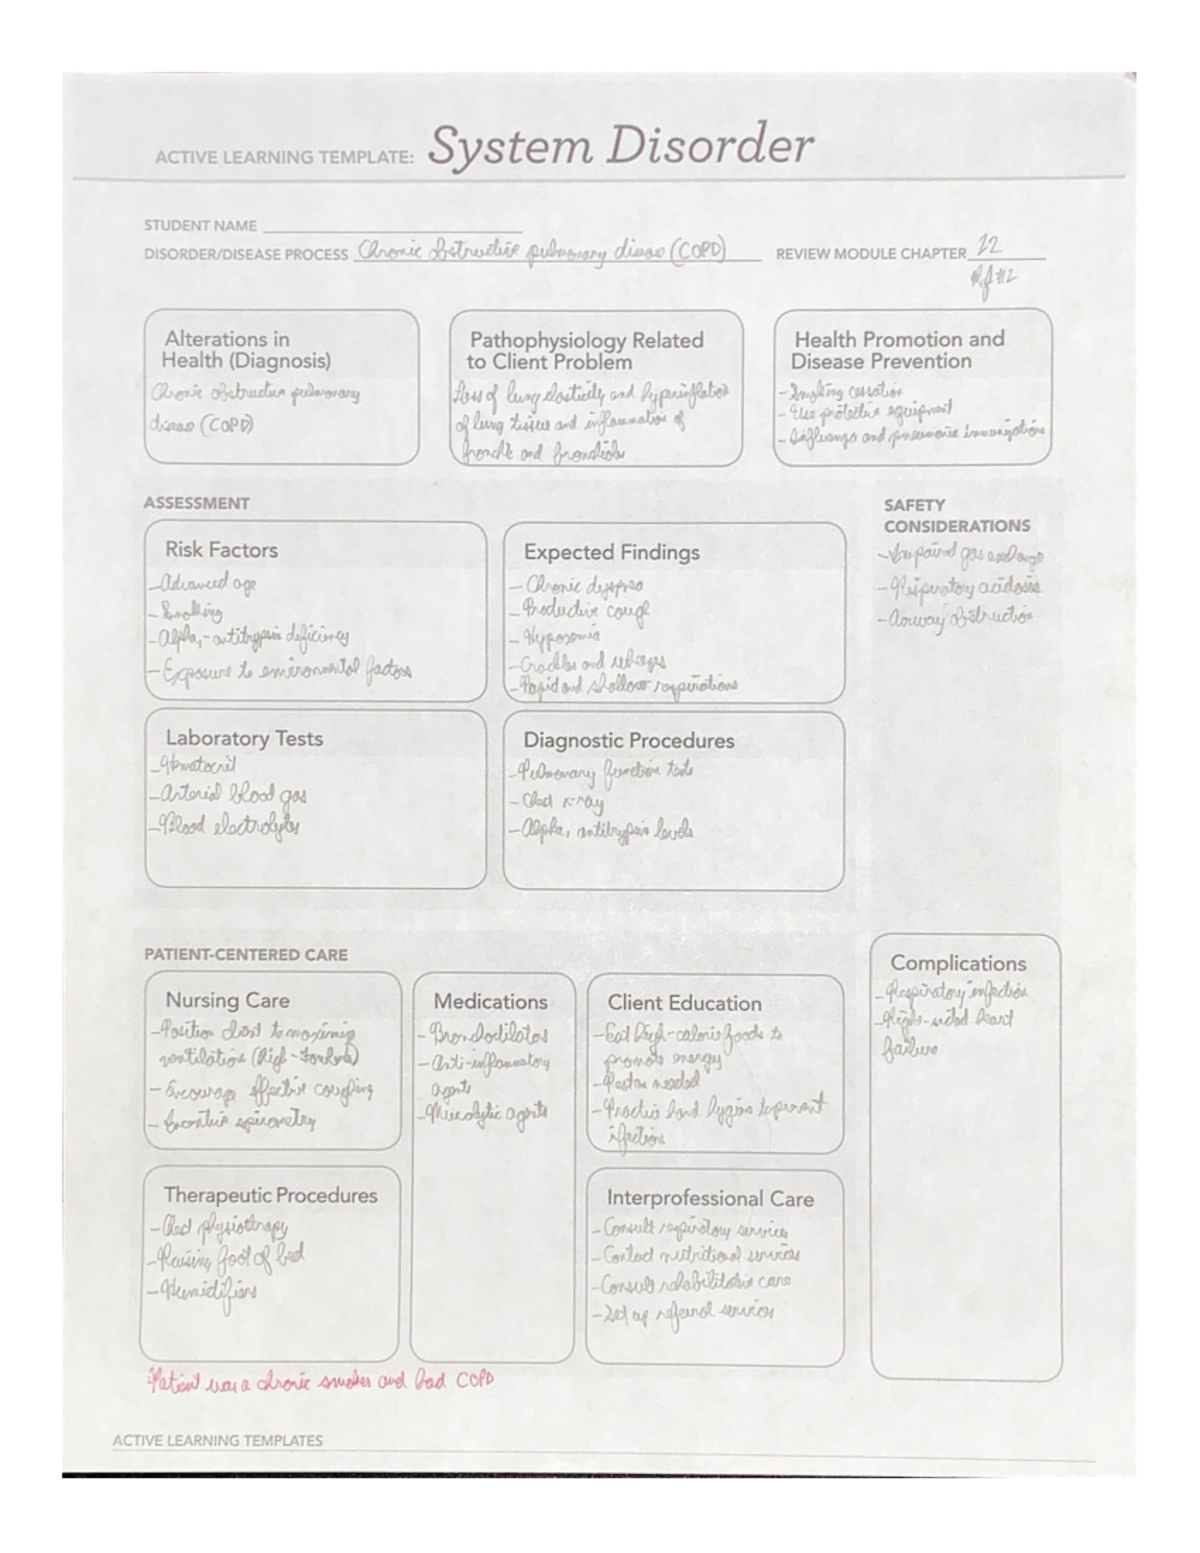 ACTIVE LEARNING TEMPLATE: System Disorder
STUDENT NAME
DISORDER/DISEASE PROCESS Chronic obstructive pulmonary disease (COPD) REVIEW MODULE CHAPTER 22
#12
Alterations in
Health (Diagnosis)
Chronic obstructive pulmonary
disease (COPD)
Pathophysiology Related
to Client Problem
Loss of lung elasticity and hyperinflation
of lung tissue and inflammation of
bronchi and bronchioles
Health Promotion and
Disease Prevention
- Smoking cessation
- Use protective equipment
- Influenza and pneumonia immunizations
ASSESSMENT
Risk Factors
- Advanced age
- Smoking
- Alpha₁-antitrypsin deficiency
- Exposure to environmental factors
Expected Findings
- Chronic dyspnea
- Productive cough
- Hypoxemia
- Crackles and wheezes
- Rapid and shallow respirations
SAFETY
CONSIDERATIONS
- Impaired gas exchange
- Respiratory acidosis
- Airway obstruction
Laboratory Tests
- Hematocrit
- Arterial blood gas
- Blood electrolytes
Diagnostic Procedures
- Pulmonary function tests
- Chest x-ray
- Alpha₁ antitrypsin levels
PATIENT-CENTERED CARE
Nursing Care
- Position client to maximize
ventilation (high-Fowler's)
- Encourage effective coughing
- Incentive spirometry
Medications
- Bronchodilators
- Anti-inflammatory
agents
- Mucolytic agents
Client Education
- Eat high-calorie foods to
promote energy
- Rest as needed
- Practice hand hygiene to prevent
infections
Complications
- Respiratory infection
- Right-sided heart
failure
Therapeutic Procedures
- Chest physiotherapy
- Raising foot of bed
- Humidifiers
Interprofessional Care
- Consult respiratory services
- Contact nutritional services
- Consult rehabilitative care
- Set up referral services
Patient was a chronic smoker and had COPD
ACTIVE LEARNING TEMPLATES